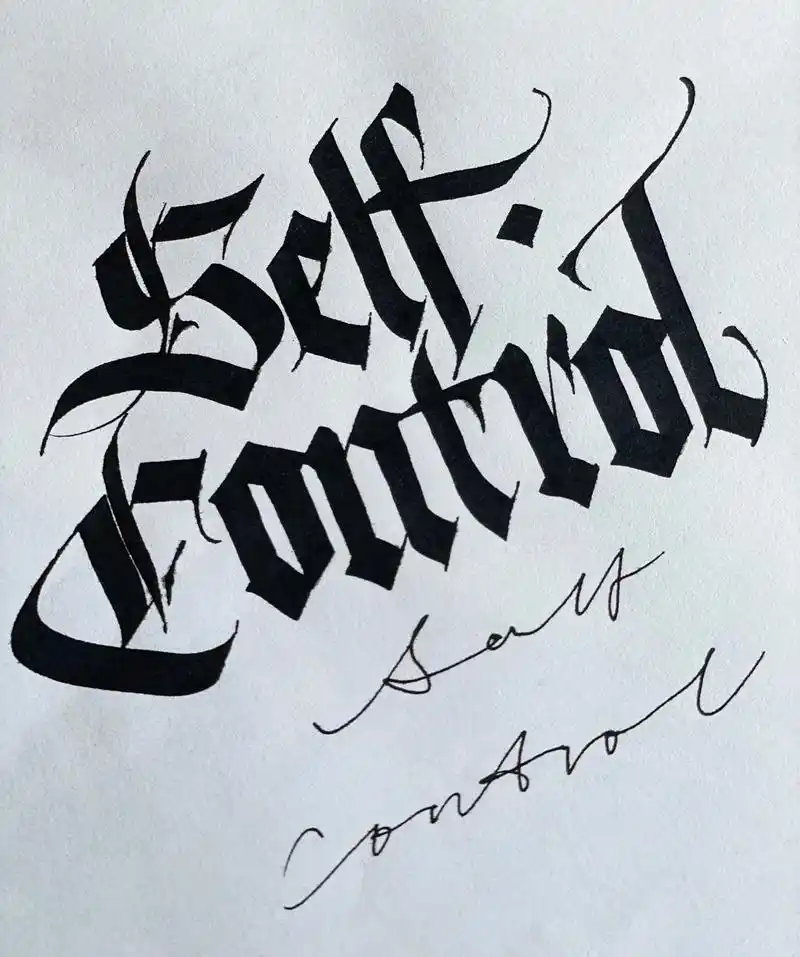 Self-
Control
Self
control